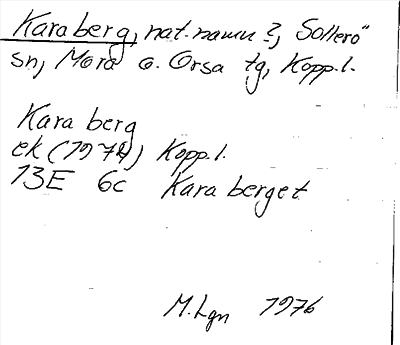 Kara berg, nat.namn ?, Sollerö"
sn, Mora o. Orsa tg, Kopp.l.
Kara berg
ek (1974) Kopp.l.
13E 6c Kara berget
M.Lgn 1976